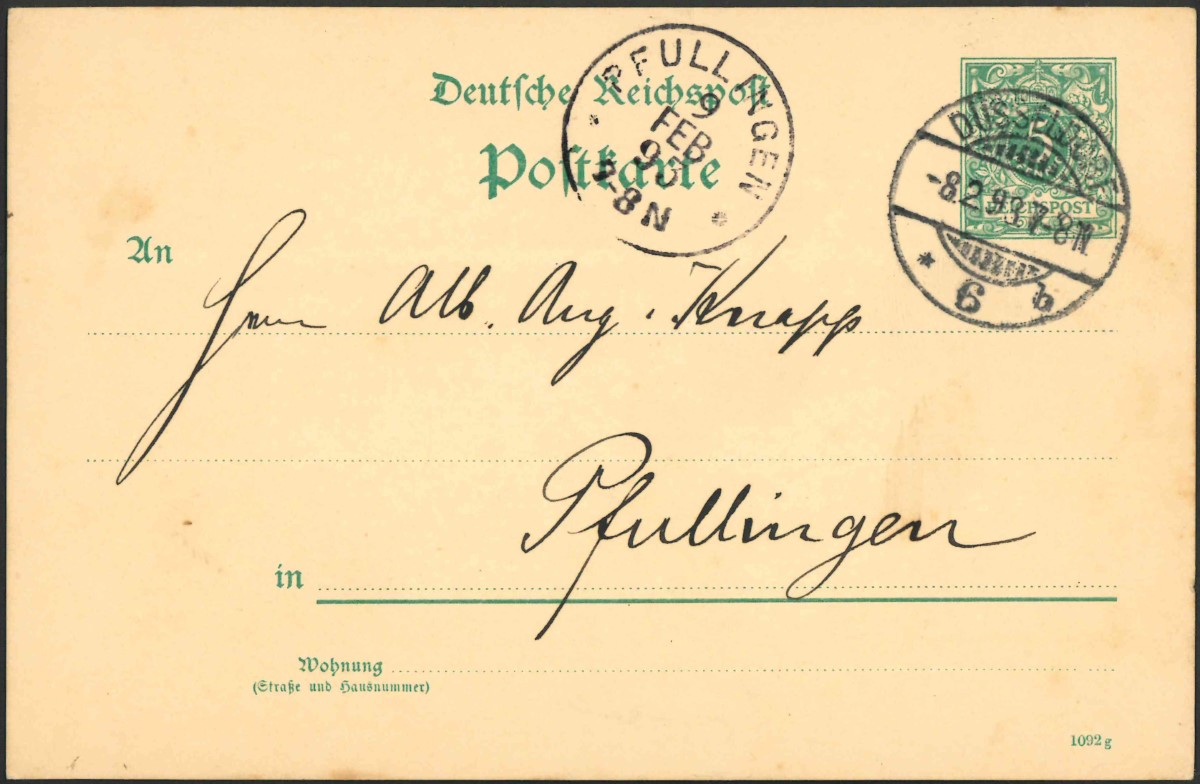 Deutsche Reichspost
Postkarte
PFULLINGEN
9
FEB
93
7-8N
DÜSSELDORF
-8.2.93.7-8N.
* 6 b
5
REICHSPOST
An
Herrn Alb. Aug. Knapp
Pfullingen
in
Wohnung
(Straße und Hausnummer)
1092 g